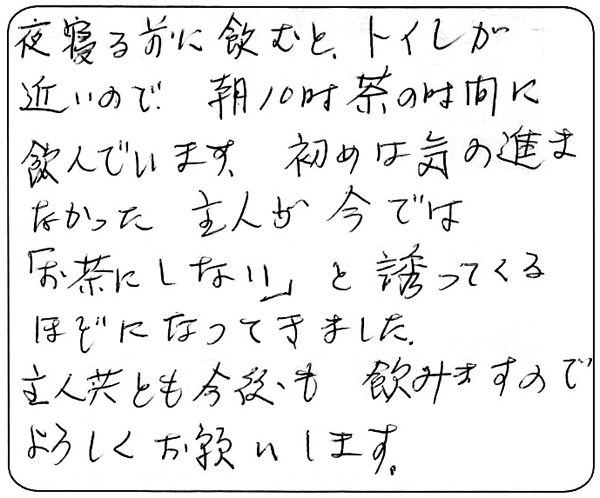 夜寝る前に飲むと、トイレが
近いので、朝10時茶の時間に
飲んでいます。初めは気の進ま
なかった主人が今では
「お茶にしない」と誘ってくる
ほどになってきました。
主人共とも今後も飲みますので
よろしくお願いします。